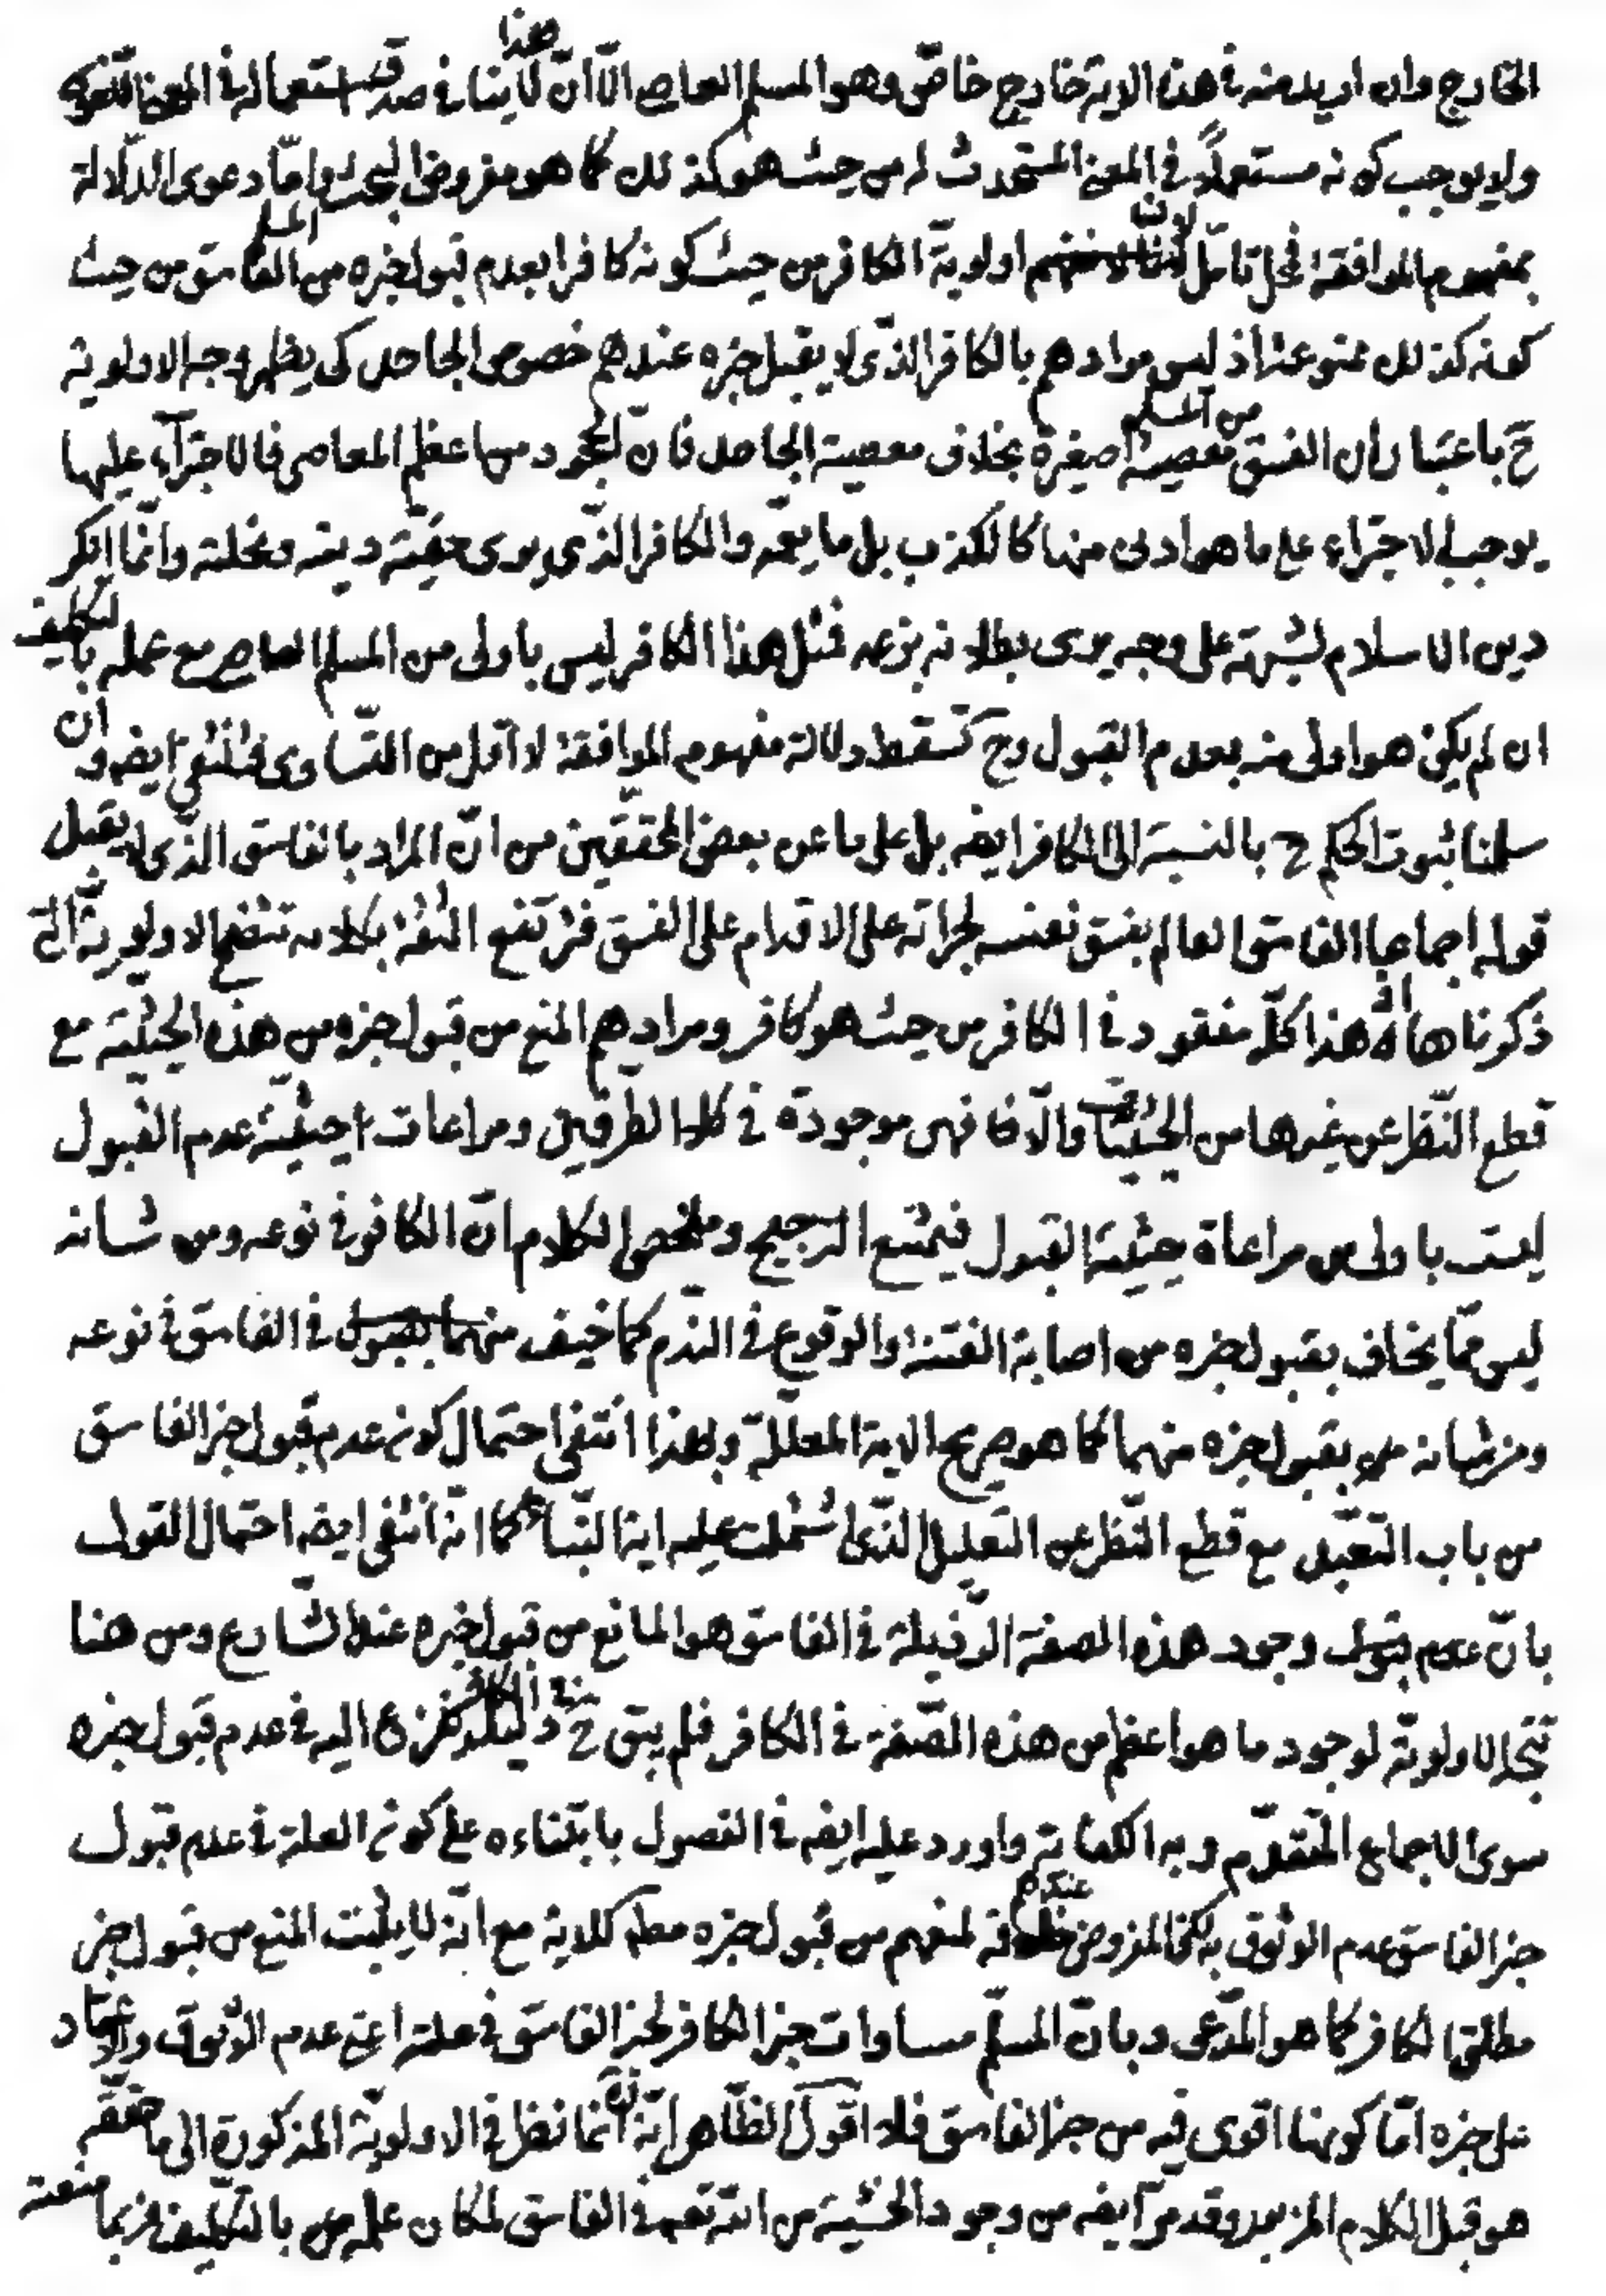 الخارج وان اريد منه في هذه الاية خارج خاصّ وهو المسلم العاصي الّا انّ هذا لا ينافي صدق استعماله في المعنى اللّغوى
ولا يوجب كونه مستعملاً في المعنى المستحدث له من حيث هو كذلك كما هو مفروض البحث وامّا دعوى الدّلالة
بمفهوم الموافقة فمحل تامّل لان اولويّة الكافر من حيث كونه كافرا بعدم قبول خبره من الفاسق المسلم من حيث
كونه كذلك ممنوعة اذ ليس مرادهم بالكافر الذّى لا يقبل خبره عندهم خصوص الجاحد كى يظهر وجه الاولوية
ح باعتبار ان الفسق من المسلم معصية صغيرة بخلاف معصية الجاحد فانّ الجحود من اعظم المعاصى فالاجترآء عليها
يوجب الاجتراء على ما هو ادنى منها كالكذب بل ما يعمّه والكافر الذّى يرى حقيّة دينه ونحلته وانّما انكر
دين الاسلام لشبهة على وجه يرى بطلانه بزعمه فمثل هذا الكافر ليس باولى من المسلم العاصي مع عمله بالتكليف
ان لم يكن هو اولى منه بعدم القبول وح تسقط دلالة مفهوم الموافقة لا اقل من التّساوى فتنتفى ايضه وان
سلمنا ثبوت الحكم ح بالنسبة الى الكافر ايضه بل على ما عن بعض المحققين من انّ المراد بالفاسق الذّى لا يقبل
قوله اجماعا الفاسق العالم بفسق نفسه لجراته على الاقدام على الفسق فترتفع الثقة بكلامه تتضح الاولوية الّتى
ذكرناها اذ هذا كلّه مفقود في الكافر من حيث هو كافر ومرادهم المنع من قبول خبره من هذه الحيثية مع
قطع النّظر عن غيرها من الحيثيّات والّا فهى موجودة في كلا الطرفين ومراعات حيثيّة عدم القبول
ليست باولى من مراعاة حيثية القبول فيمتنع الترجيح وملخص الكلام انّ الكافر في نوعه ومن شانه
ليس ممّا يخاف بقبول خبره من اصابة الفتنة والوقوع في النّدم كما خيف منهما بقبول في الفاسق في نوعه
ومن شانه من بقبول خبره منهما كما هو صريح الاية المعللّة وبهذا انتفى احتمال كون عدم قبول خبر الفاسق
من باب التّعبّد مع قطع النّظر عن التعليل الذّى اشتملت عليه اية النّباء كما انّه انتفى ايضه احتمال القول
بانّ عدم وجود هذه الصفة الرّذيلة في الفاسق هو المانع من قبول خبره عند الشّارع ومن هنا
تتّجه الاولويّة لوجود ما هو اعظم من هذه الصّفة في الكافر فلم يبق ح في الكافر دليل نفزع اليه في عدم قبول خبره
سوى الاجماع المتقدّم وبه الكفاية واورد عليه ايضه في الفصول بابتناءه على كون العلة في عدم قبول
خبر الفاسق عدم الوثوق به لكن المفروض عندهم خلافه لمنعهم من قبول خبره مطه كالاية مع انّه لا يثبت المنع من قبول خبر
مطلق الكافر كما هو المدّعى وبانّ المسلّم مساوات خبر الكافر لخبر الفاسق في علته اعنى عدم الوثوق والاعتماد
على خبره امّا كونها اقوى فيه من خبر الفاسق فلا اقول الظّاهر انّه ره انّما نظر في الاولويّة المذكورة الى ما حقّقه
هو قبل الكلام المزبور وقد مرّ ايضه من وجود الخشية من الله تعه في الفاسق لمكان علمه بالتكليف فربما منعته